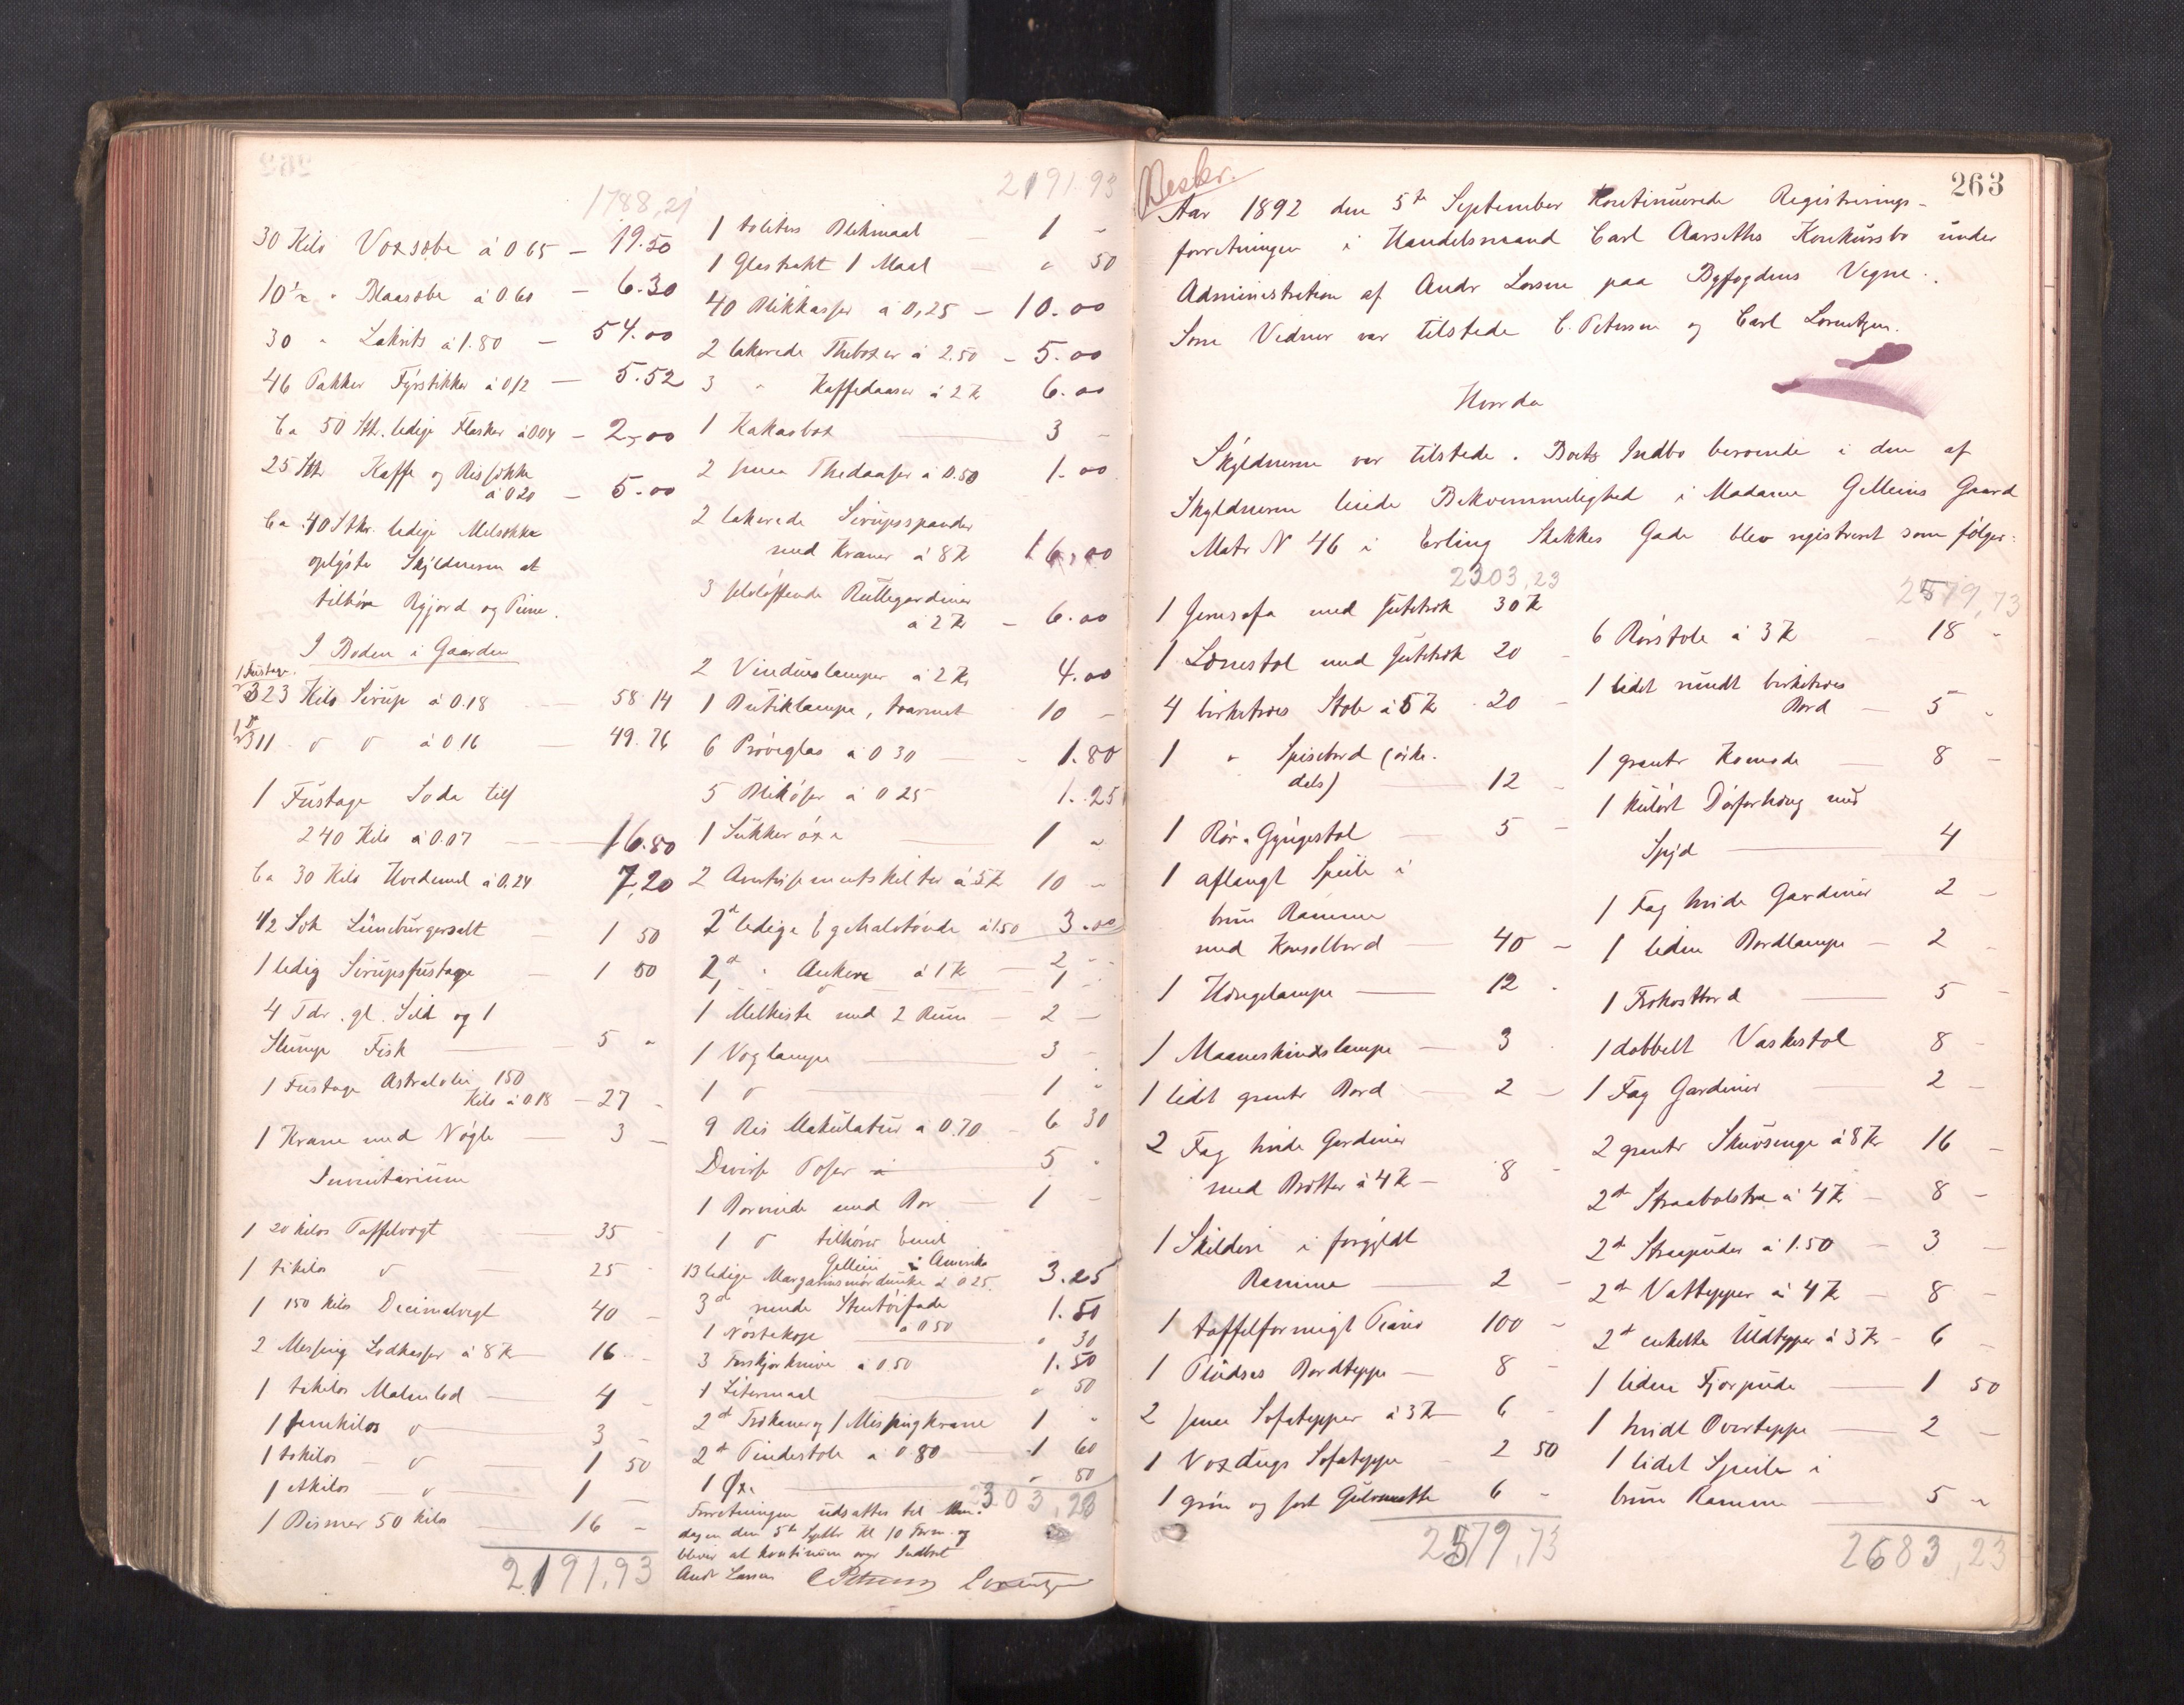 1788,21
30 Kilo Voxsæbe à 0 65 — 19.50
10 1/2 " Blaasæbe à 0.60 — 6.30
30 " Lakrits à 1.80 — 54.00
46 Pakker Fyrstikker à 0 12 — 5.52
Ca 50 Stk. ledige Flasker à 0 04 — 2,00
25 Stk Kaffe og Rissække
à 0 20 — 5.00
Ca 40 Stkr. ledige Melsække
oplyste Skyldneren at
tilhøre Rgjord og
I Boden i Gaarden
1 Fustage
323 Kilo Sirup à 0.18 — 58 14
311 " " à 0 16 — 49.76
1 Fustage Soda
240 Kilo à 0.07 — 16.80
Ca 30 Kilo Hvedemel à 0.24 7,20
1/2 Sæk Lüneburgersalt — 1 50
1 ledig Sirupsfustage — 1 50
4 Tdr. gl. Sild og 1
Slump Fisk — 5 "
1 Fustage Astralolie 150
Kilo à 0 18 — 27 -
1 Krane med Nøgle — 3 -
Inventarium
1 20 kilos Taffelvægt — 35
1 tikilos d — 25
1 150 kilos Decimalvegt 40 -
2 Messing Lodkasser à 8 Kr 16 -
1 tikilos Malmlod — 4 -
1 femkilos d — 3 -
1 tokilos — d — 1 50
1 etkilos — d — 1 -
1 Bismer 50 kilo 16 -
2191,93
2191.93
1 toliters Blikmaal 1 -
1 Glastrakt 1 Maal — " 50
40 Blikkasser à 0,25 — 10.00
2 lakerede Theboxer à 2.50 — 5.00
3 " Kaffedaaser à 2 Kr 6.00
1 Kakaobox — 3 -
2 smaa Thedaaser à 0.50 1.00
2 lakerede Sirupsspander
med Kraner à 8 Kr 16,00
3 selvløftende Rullegardiner
à 2 Kr — 6.00
2 Vindueslamper à 2 Kr 4.00
1 Butiklampe, toarmet 10 -
6 Prøveglas à 0 30 — 1.80
5 Bliköser à 0 25 1.25
1 Sukkerøxe — 1 "
2 Avertissementskilter à 5 Kr 10 -
2 d ledige Egemalstønde à 1.50 3.00
2 d " Ankere à 1 Kr — 2 -
1 d — 1 -
1 Melkiste med 2 Rum — 2 -
1 Voglampe — 3 -
1 d — 1 "
9 Ris Makulatur à 0.70 — 6 30
Diverse Poser — 5 "
1 Borvinde med Bor — 1 -
1 d tilhører Emil
Gellein i Amerika
13 ledige Margarinsmørdunke à 0 25 3.25
3 d runde Stentøifade 1.50
à 0 50
1 Nøstekop — " 30
3 Forskjærknive à 0.50 1.50
1 Litermaal — " 50
2 d Trækraner og 1 Messingkrane 1 "
2 d Pindestole à 0.80 — 1 60
1 Øxe — " 50
2303,23
Forretningen udsattes til Man-
dagen den 5te Septbr Kl 10 Form. og
bliver at kontinuere over Indboet
Andr Larsen C Petersen Lorentzen
Beskr.
263
Aar 1892 den 5te September kontinuerede Registrerings-
forretningen i Handelsmand Carl Aarseths Konkursbo under
Administration af Andr Larsen paa Byfogdens Vegne.
Som Vidner var tilstede C. Petersen og Carl Lorentzen.
Hvorda
Skyldneren var tilstede. Boets Indbo beroende i den af
Skyldneren leiede Bekvemmelighed i Madame Gelleins Gaard
Matr N 46 i Erling Skakkes Gade blev registreret som følger:
2303,23
1 Jernsofa med Jutetræk 30 Kr
1 Lænestol med Jutetræk 20 -
4 birketræes Stole à 5 Kr 20 -
1 " Spisebord (ovke.
dels) — 12 -
1 Rør-Gyngestol — 5 -
1 aflangt Speile i
brun Ramme
med Konsolbord — 40 -
1 Hængelampe — 12 -
1 Maaneskinslampe — 3 -
1 lidet grantr Bord — 2 -
2 Fag hvide Gardiner
med Brætter à 4 Kr — 8 -
1 Skilderi i forgyldt
Ramme — 2 -
1 taffelformigt Piano 100 -
1 Plüdses Bordteppe — 8 -
2 smaa Sofatepper à 3 Kr 6 -
1 Voxdugs Sofateppe — 2 50
1 grøn og sort Gulvmatte 6 -
2579,73
2579,73
6 Rørstole à 3 Kr — 18 -
1 lidet rundt birketræes
Bord — 5 -
1 grantr Komode — 8 -
1 kulørt Dørforhæng med
Spyd — 4
1 Fag hvide Gardiner 2 -
1 liden Bordlampe — 2 -
1 Frokostbord — 5 -
1 dobbelt Vaskestol 8 -
1 Fag Gardiner — 2 -
2 grantr Skuvsenge à 8 Kr 16 -
2 d Straabolstre à 4 Kr — 8 -
2 d Straapuder à 1.50 — 3 -
2 d Vattepper à 4 Kr — 8 -
2 d enkelte Uldtepper à 3 Kr — 6 -
1 liden Fjærpude — 1 50
1 hvidt Overteppe — 2 -
1 lidet Speile i
brun Ramme — 5 -
2683,23